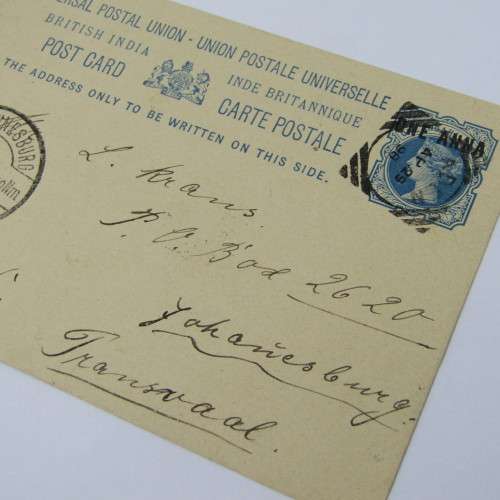 ERSAL POSTAL UNION - UNION POSTALE UNIVERSELLE
BRITISH INDIA
INDE BRITANNIQUE
POST CARD
CARTE POSTALE
THE ADDRESS ONLY TO BE WRITTEN ON THIS SIDE.
ONE ANNA
NESBURG
L. Kraus.
P.O. Box 2620
Johannesburg.
Transvaal.